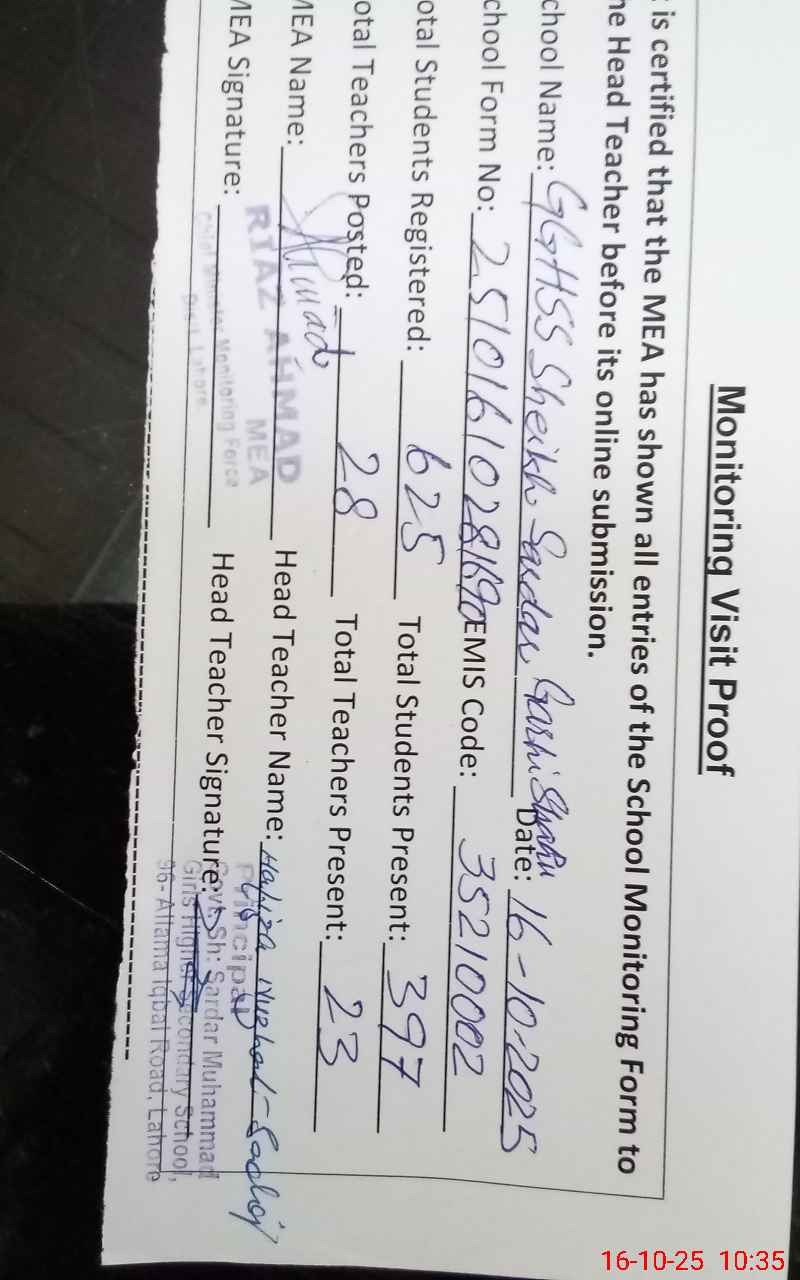 Monitoring Visit Proof
is certified that the MEA has shown all entries of the School Monitoring Form to
he Head Teacher before its online submission.
chool Name: GGHSS Sheikh Sardar Garhi Shahu Date: 16-10-2025
chool Form No: 25101610281690 EMIS Code: 35210002
otal Students Registered: 625 Total Students Present: 397
otal Teachers Posted: 28 Total Teachers Present: 23
MEA Name: Head Teacher Name: Hafiza
MEA Signature: Head Teacher Signature:
Ahmad
RIAZ AHMAD
MEA
Chief Minister Monitoring Force
Distt. Lahore
Principal
Govt. Sh: Sardar Muhammad
Girls Higher Secondary School,
96- Allama Iqbal Road, Lahore
16-10-25 10:35